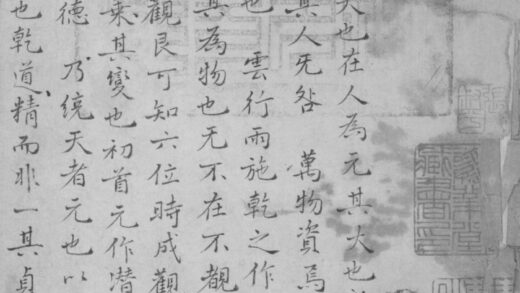 大也在人為元其大也
其人旡咎 萬物資焉
也 雲行雨施乾之作
其為物也无不在不覩
觀艮可知六位時成觀
乗其變也初首元作潜
德 乃統天者元也以
也乾道精而非一其貞